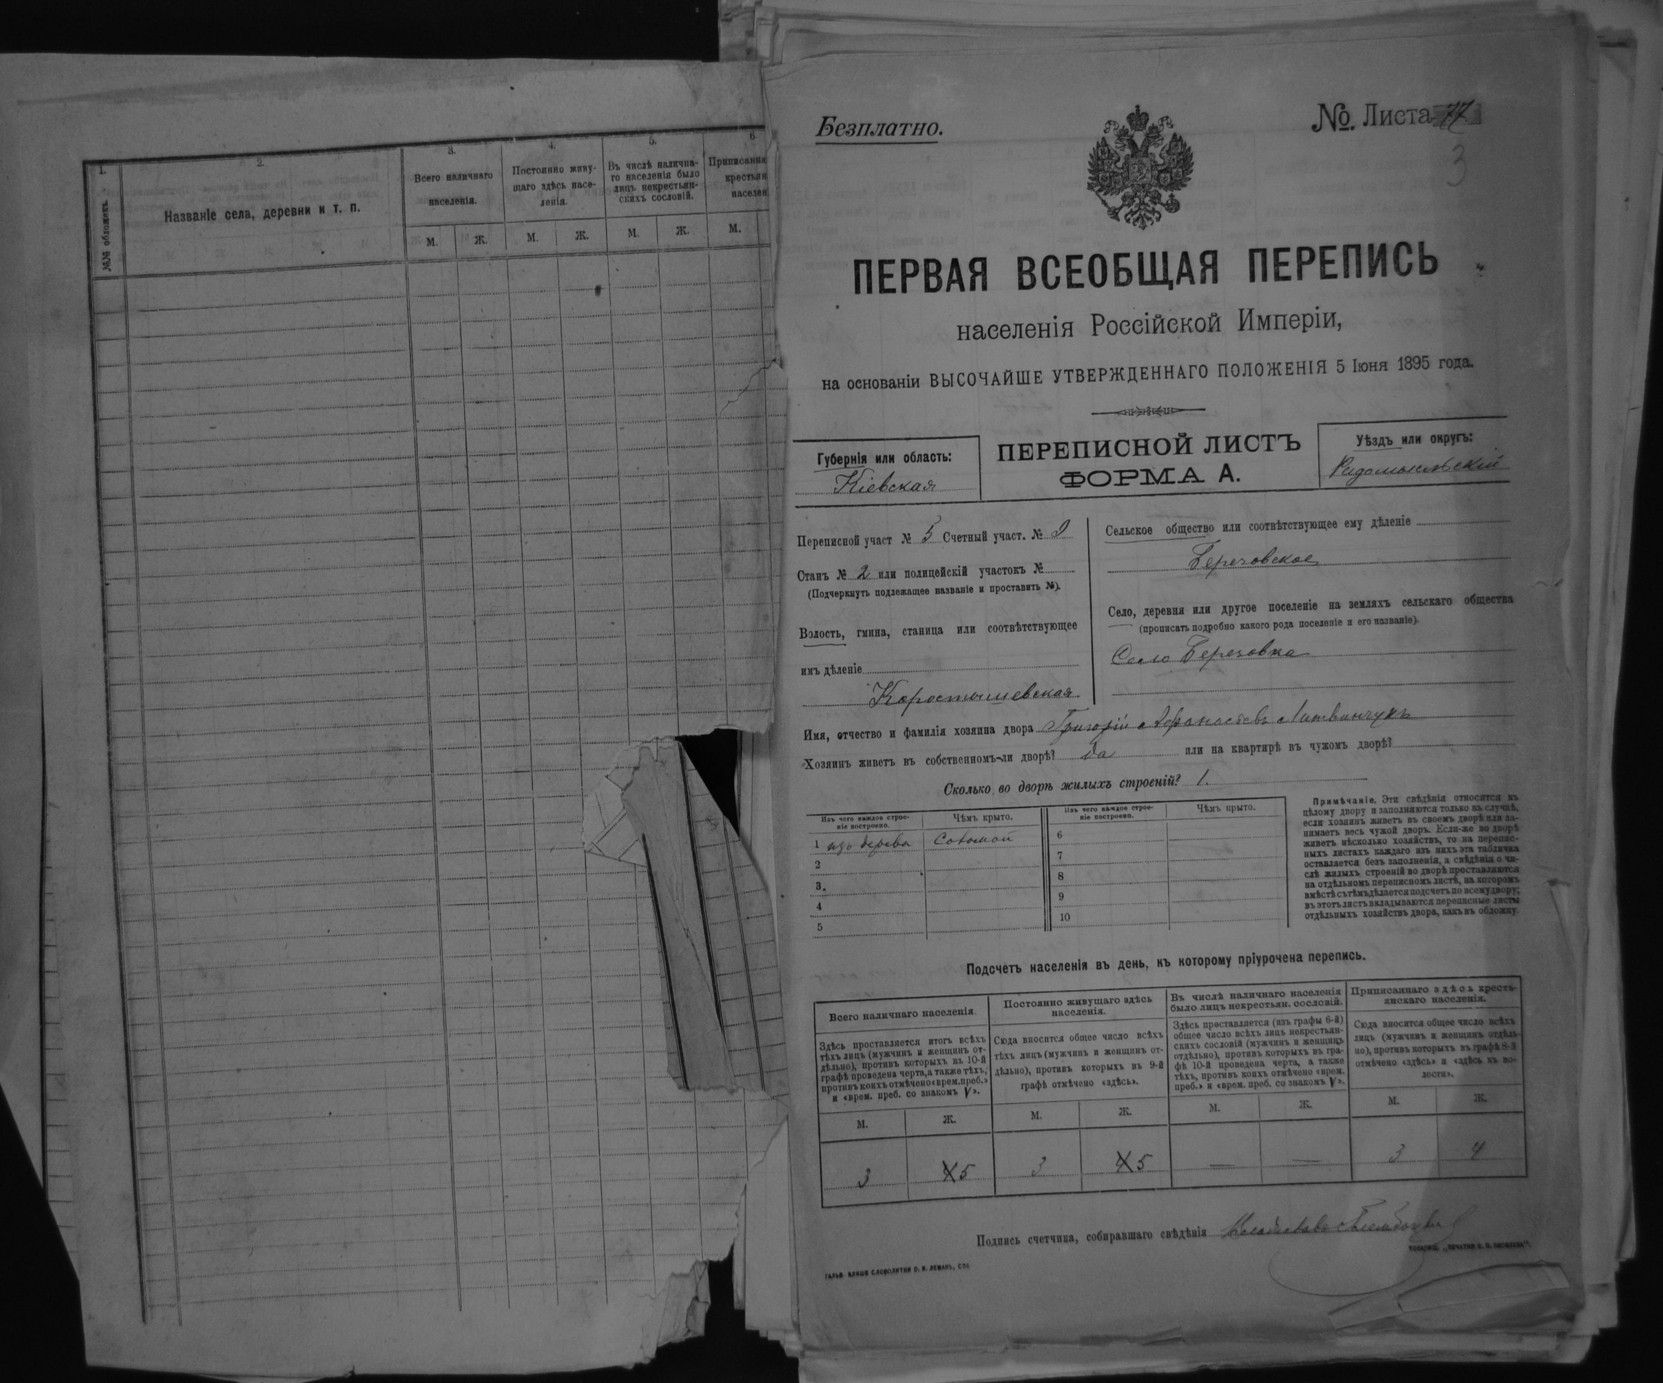 1. 2. 3. 4. 5. 6
№№ обложекъ.
Названіе села, деревни и т. п.
Всего наличнаго
населенія.
Постоянно живу-
щаго здѣсь насе-
ленія.
Въ числѣ налична-
го населенія было
лицъ некрестьян-
скихъ сословій.
Приписанна
крестьян
населен
М. Ж. М. Ж. М. Ж. М.
Безплатно.
№. Листа
3
ПЕРВАЯ ВСЕОБЩАЯ ПЕРЕПИСЬ
населенія Россійской Имперіи,
на основаніи ВЫСОЧАЙШЕ УТВЕРЖДЕННАГО ПОЛОЖЕНІЯ 5 Іюня 1895 года.
Губернія или область:
Кіевская
ПЕРЕПИСНОЙ ЛИСТЪ
ФОРМА А.
Уѣздъ или округъ:
Радомысльскій
Переписной участ № 5 Счетный участ. №
Станъ № 2 или полицейскій участокъ №
(Подчеркнуть подлежащее названіе и проставить №).
Волость, гмина, станица или соотвѣтствующее
имъ дѣленіе
Коростышевская
Сельское общество или соотвѣтствующее ему дѣленіе
Березовское
Село, деревня или другое поселеніе на земляхъ сельскаго общества
(прописать подробно какого рода поселеніе и его названіе).
Село Березовка
Имя, отчество и фамилія хозяина двора Григорій Афанасьевъ Литвинчукъ
Хозяинъ живетъ въ собственномъ-ли дворѣ? Да или на квартирѣ въ чужомъ дворѣ?
Сколько во дворѣ жилыхъ строеній? 1.
Изъ чего каждое строе-
ніе построено.
Чѣмъ крыто.
Изъ чего каждое строе-
ніе построено.
Чѣмъ крыто.
1 изъ дерева Соломой
2
3.
4
5
6
7
8
9
10
Примѣчаніе. Эти свѣдѣнія относятся къ
цѣлому двору и заполняются только въ случаѣ,
если хозяинъ живетъ въ своемъ дворѣ или за-
нимаетъ весь чужой дворъ. Если-же во дворѣ
живетъ нѣсколько хозяйствъ, то на перепис-
ныхъ листахъ каждаго изъ нихъ эта табличка
оставляется безъ заполненія, а свѣдѣнія о чи-
слѣ жилыхъ строеній во дворѣ проставляются
на отдѣльномъ переписномъ листѣ, на которомъ
вмѣстѣ съ тѣмъ дѣлается подсчетъ по всему двору;
въ этотъ листъ вкладываются переписные листы
отдѣльныхъ хозяйствъ двора, какъ въ обложку.
Подсчетъ населенія въ день, къ которому пріурочена перепись.
Всего наличнаго населенія.
Здѣсь проставляется итогъ всѣхъ
тѣхъ лицъ (мужчинъ и женщинъ от-
дѣльно), противъ которыхъ въ 10-й
графѣ проведена черта, а также тѣхъ,
противъ коихъ отмѣчено «врем. преб.»
и «врем. преб. со знакомъ V».
Постоянно живущаго здѣсь
населенія.
Сюда вносится общее число всѣхъ
тѣхъ лицъ (мужчинъ и женщинъ от-
дѣльно), противъ которыхъ въ 9-й
графѣ отмѣчено «здѣсь».
Въ числѣ наличнаго населенія
было лицъ некрестьян. сословій.
Здѣсь проставляется (изъ графы 6-й)
общее число всѣхъ лицъ некрестьян-
скихъ сословій (мужчинъ и женщинъ
отдѣльно), противъ которыхъ въ гра-
фѣ 10-й проведена черта, а также
тѣхъ, противъ коихъ отмѣчено «врем.
преб.» и «врем. преб. со знакомъ V».
Приписаннаго здѣсь кресть-
янскаго населенія.
Сюда вносится общее число всѣхъ
лицъ (мужчинъ и женщинъ отдѣль-
но), противъ которыхъ въ графѣ 8-й
отмѣчено «здѣсь» и «здѣсь въ во-
лости».
М. Ж. М. Ж. М. Ж. М. Ж.
3 5 3 5 — — 3 4
Подпись счетчика, собиравшаго свѣдѣнія
ГАЛЬВ. КЛИШЕ СЛОВОЛИТНИ О. И. ЛЕМАНЪ, СПБ
ТОВАРИЩ. „ПЕЧАТНЯ С. П. ЯКОВЛЕВА“.